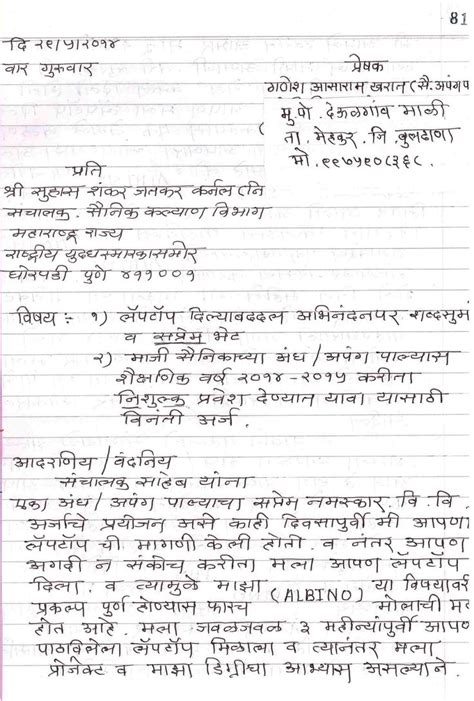 81
दि २९/५/२०१४
वार गुरुवार
प्रेषक
गणेश आसाराम खरात (सै.अपंग प
मु.पो. देऊळगांव माळी
ता. मेहकर. जि. बुलढाणा
मो. ९९७५९०८३६८.
प्रति
श्री सुहास शंकर जतकर कर्नल (नि
संचालक. सैनिक कल्याण विभाग
महाराष्ट्र राज्य
राष्ट्रीय युध्दस्मारकासमोर
घोरपडी पुणे ४११००१
विषय :- १) लॅपटॉप दिल्याबददल अभिनंदनपर शब्दसुम
व सप्रेम भेट
२) माजी सैनिकाच्या अंध / अपंग पाल्यास
शैक्षणिक वर्ष २०१४ - २०१५ करीता
निशुल्क प्रवेश देण्यात यावा यासाठी
विनंती अर्ज.
आदरणिय / वंदनिय
संचालक साहेब यांना
एका अंध / अपंग पाल्याचा सप्रेम नमस्कार. वि. वि.
अर्जाचे प्रयोजन असे काही दिवसापुर्वी मी आपणा
लॅपटॉप ची मागणी केली होती. व नंतर आपण
अगदी न संकोच करीता मला आपण लॅपटॉप
दिला. व त्यामुळे माझा (ALBINO) या विषयावर
प्रकल्प पुर्ण होण्यास फारच मोलाची मद
होत आहे. मला जवळजवळ ३ महीन्यांपुर्वी आपण
पाठविलेला लॅपटॉप मिळाला व त्यानंतर मला
प्रोजेक्ट व माझा डिग्रीचा आभ्यास असल्याने.